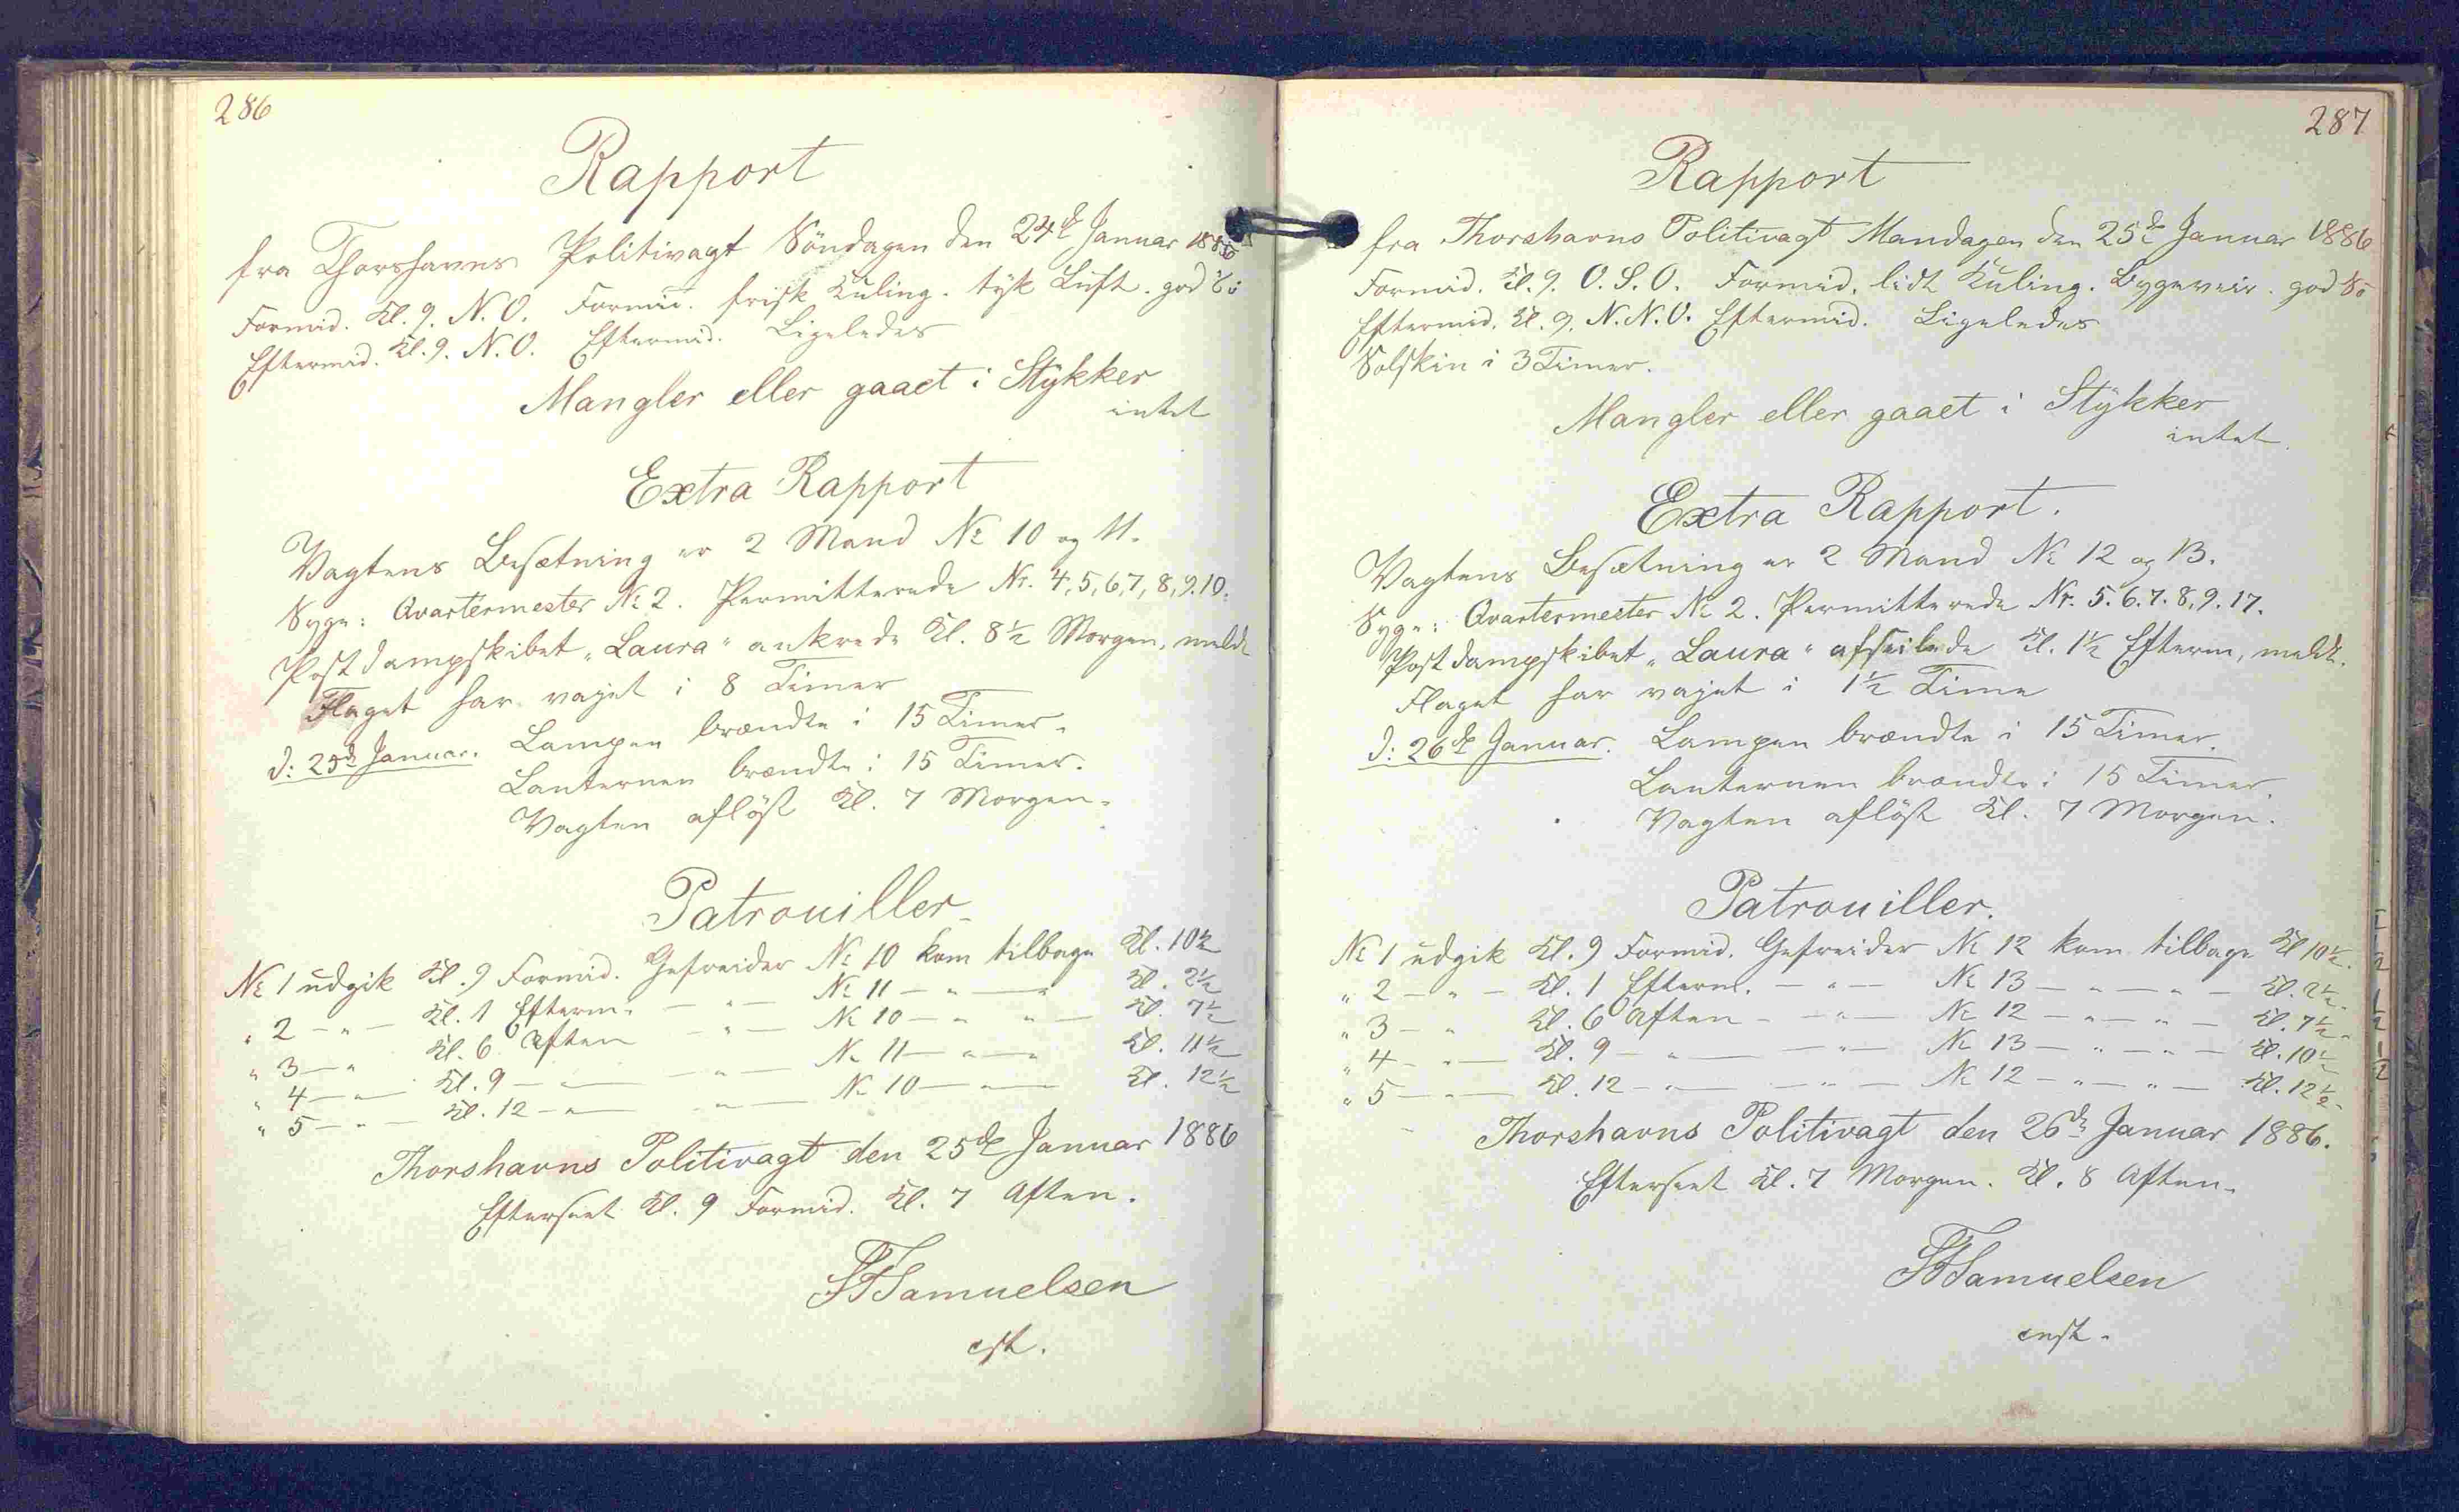 286
Rapport
fra Thorshavns Politivagt Söndagen den 24de Januar 1886
Formid. Kl. 9. N.O. Formid. frisk Kuling. tyk Luft. god Sö
Eftermid. Kl. 9. N.O. Eftermid. Ligeledes
Mangler eller gaaet i Stykker
intet
Extra Rapport
Vagtens Besætning er 2 Mand No 10 og 11.
Syge: Qvartermester No 2. Permitterede Nr. 4, 5, 6, 7, 8, 9. 10.
Postdampskibet „Laura" ankrede Kl. 8½ Morgen, meldt
Flaget har vajet i 8 Timer
d: 25de Januar. Lampen brændte i 15 Timer.
Lanternen brændte i 15 Timer.
Vagten aflöst Kl. 7 Morgen.
Patrouiller
No 1 udgik Kl. 9 Formid. Gefreider No 10 kom tilbage Kl. 10½
" 2 — " — Kl. 1 Efterm. — " — No 11 — " — " Kl. 2½
" 3 — " Kl. 6 Aften — " — No 10 — " " — Kl. 7½
" 4 — " — Kl. 9 — " — — " — No 11 — " — " Kl. 11½
" 5 — " — Kl. 12 — " — — " — No 10 — " — Kl. 12½
Thorshavns Politivagt den 25de Januar 1886
Efterseet Kl. 9 Formid. Kl. 7 Aften.
Samuelsen
cst.
287
Rapport
fra Thorshavns Politivagt Mandagen den 25de Januar 1886
Formid. Kl. 9. O.S.O. Formid. lidt Kuling. Bygeveir. god Sö
Eftermid. Kl. 9. N.N.O. Eftermid. Ligeledes
Solskin i 3 Timer.
Mangler eller gaaet i Stykker
intet.
Extra Rapport.
Vagtens Besætning er 2 Mand No 12 og 13.
Syge: Qvartermester No 2. Permitterede Nr. 5. 6. 7. 8. 9. 17.
Postdampskibet „Laura" afseilede Kl. 1½ Efterm, meldt.
Flaget har vajet i 1½ Time
d: 26de Januar. Lampen brændte i 15 Timer.
Lanternen brændte i 15 Timer.
Vagten aflöst Kl. 7 Morgen.
Patrouiller.
No 1 udgik Kl. 9 Formid. Gefreider No 12 kom tilbage Kl 10½.
" 2 — " — Kl. 1 Efterm. — " — No 13 — " — " — Kl. 2½.
" 3 — " Kl. 6 Aften — — " — No 12 — " — " — Kl. 7½.
" 4 — " — Kl. 9 — " — — " — No 13 — " — " — Kl. 10½
" 5 — " — Kl. 12 — " — — " — No 12 — " — " — Kl. 12½.
Thorshavns Politivagt den 26de Januar 1886.
Efterseet Kl. 7 Morgen. Kl. 8 Aften.
Samuelsen
cnst.